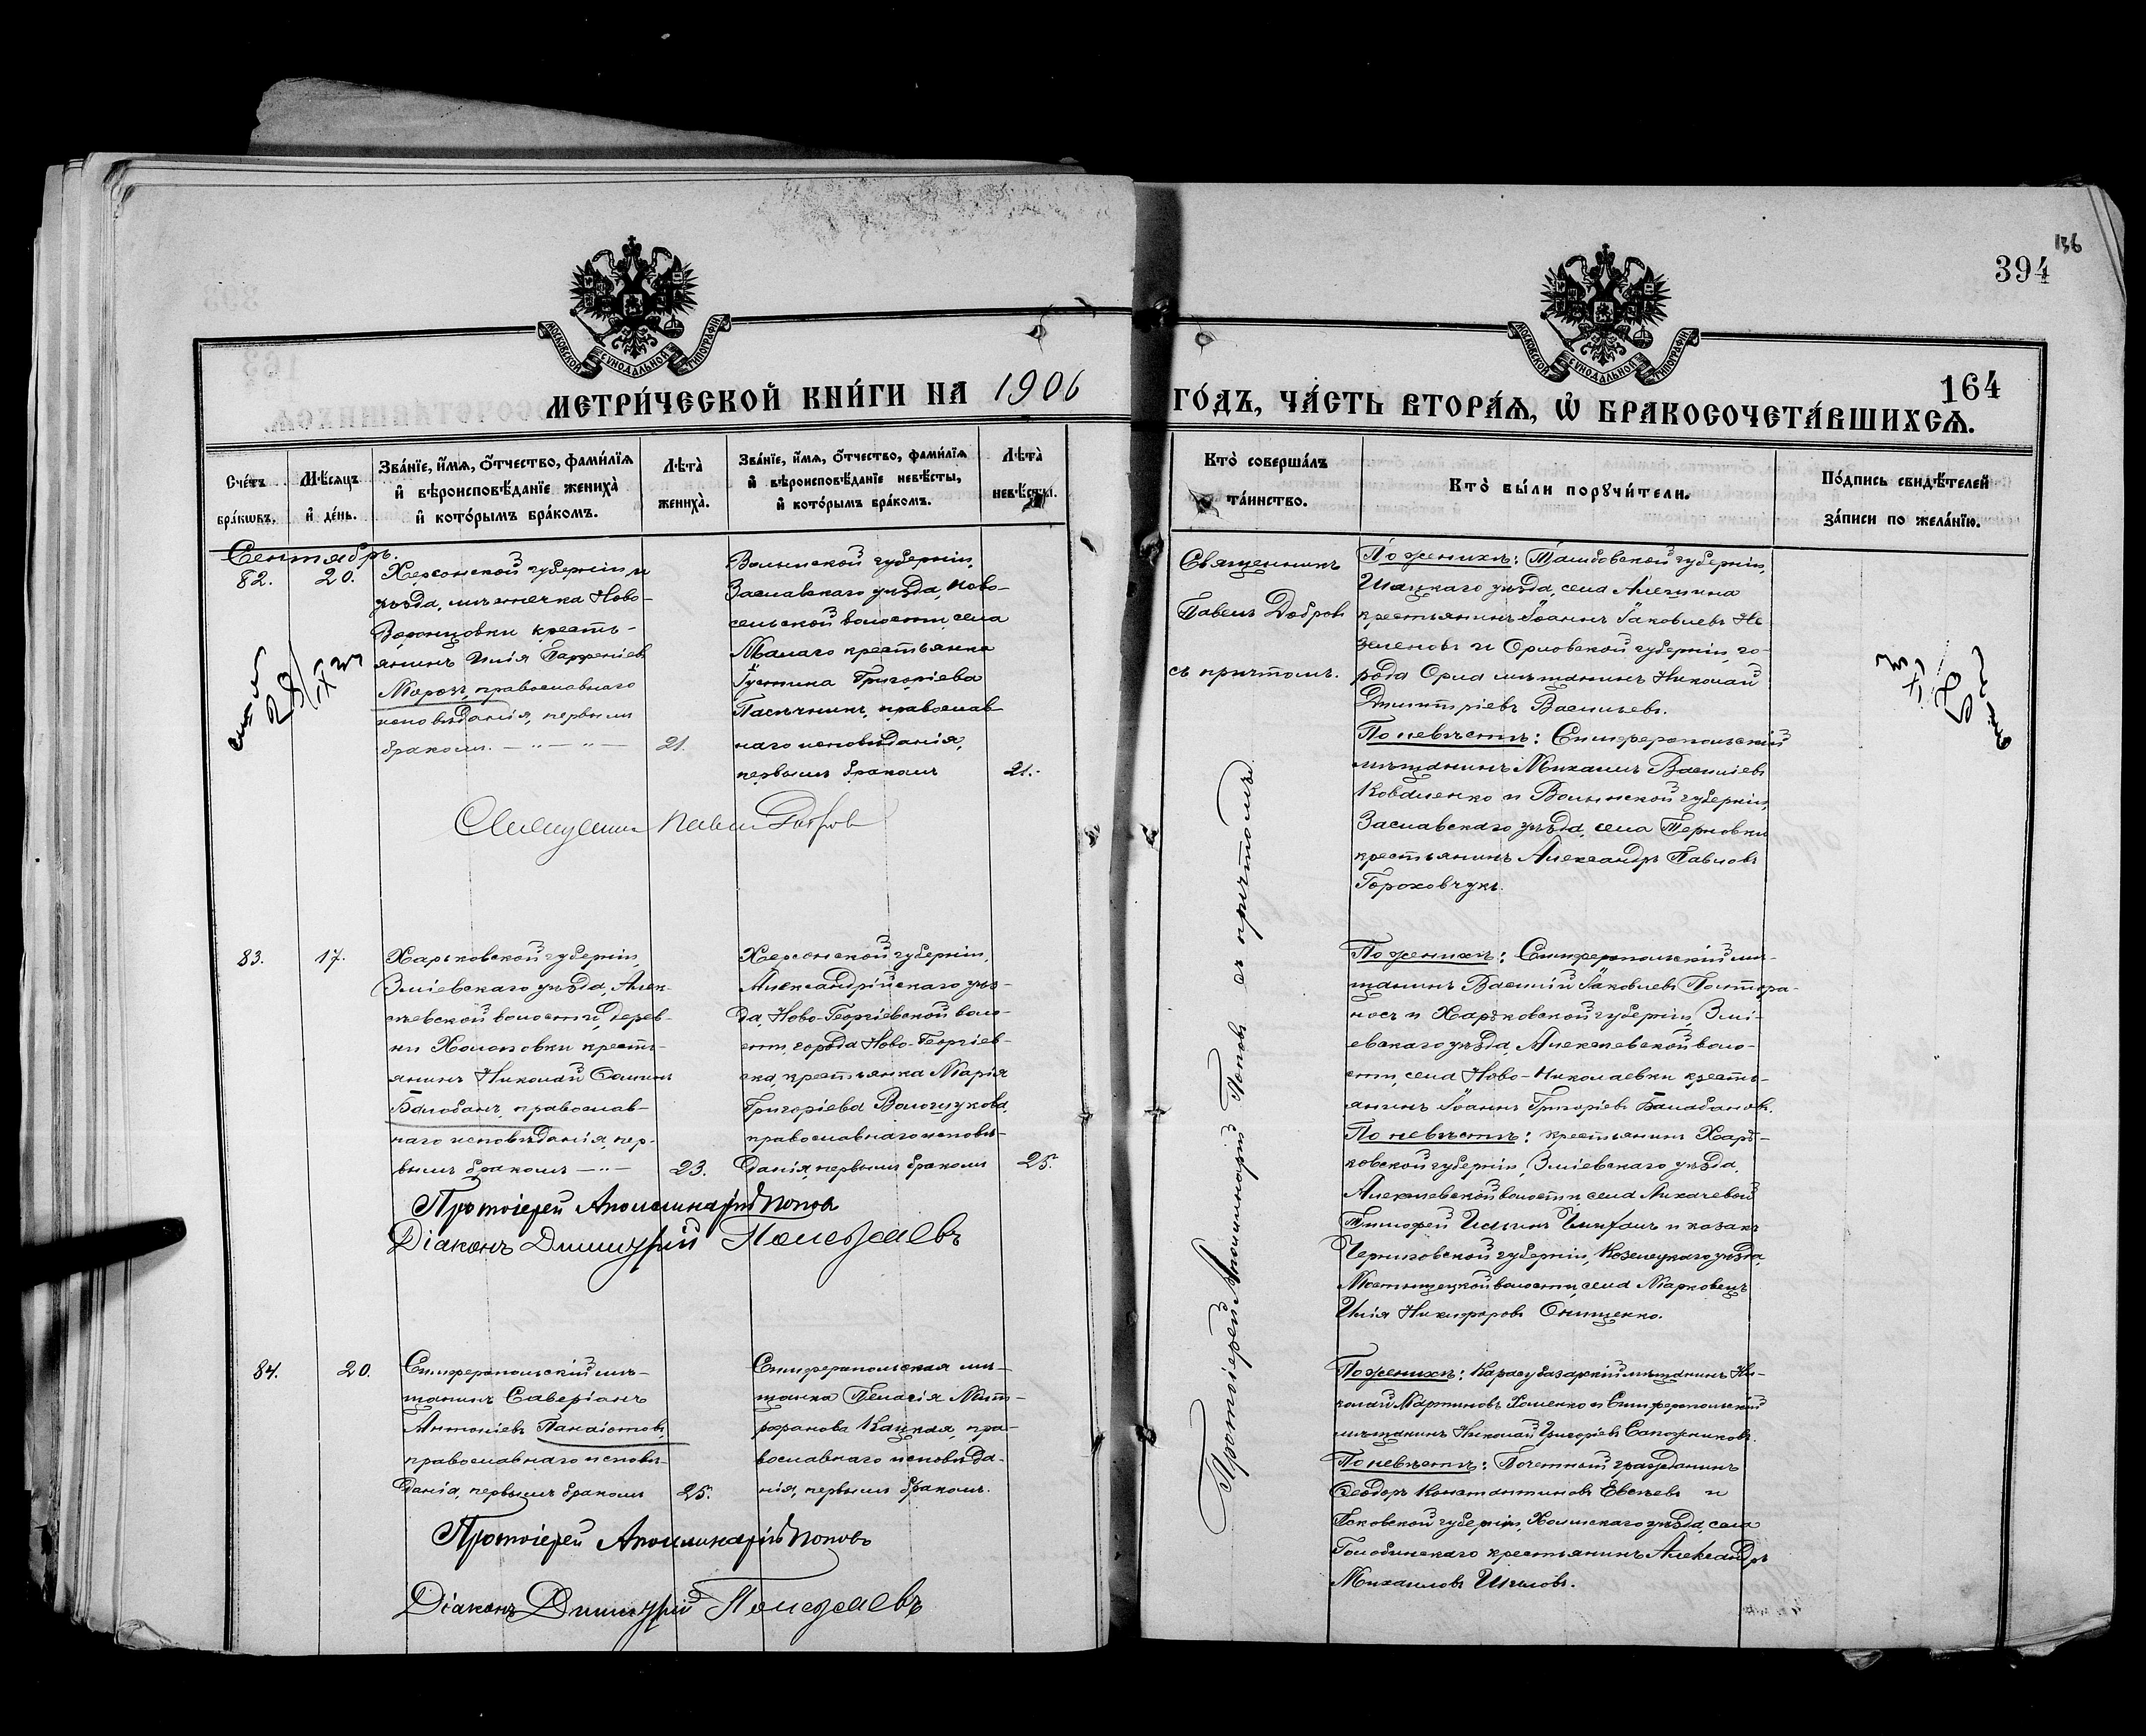 136
394
164
МОСКОВСКОЙ СУНОДАЛЬНОЙ ТИПОГРАФІИ
МОСКОВСКОЙ СУНОДАЛЬНОЙ ТИПОГРАФІИ
МЕТРИ́ЧЕСКОЙ КНИ́ГИ НА 1906 ГО́ДЪ, ЧА́СТЬ ВТОРА́Я, Ѽ БРАКОСОЧЕТА́ВШИХСЯ.
Сче́тъ бра́кѡвъ.
Мѣ́сяцъ и҆ де́нь.
Зва́нїе, и҆́мѧ, ѻ҆́тчество, фами́лїѧ
и҆ вѣроисповѣ́данїе жениха̀
и҆ кото́рымъ бра́комъ.
Лѣта̀ жениха̀.
Зва́нїе, и҆́мѧ, ѻ҆́тчество, фами́лїѧ
и҆ вѣроисповѣ́данїе невѣ́сты,
и҆ кото́рымъ бра́комъ.
Лѣта̀ невѣ́сты.
Кто̀ соверша́лъ
та́инство.
Кто̀ бы́ли порꙋчи́тели.
По́дпись свидѣ́телей
за́писи по жела́нїю.
Сентябрь.
82. 20.
Херсонской губерніи и
уѣзда, мѣстечка Ново-
Воронцовки кресть-
янинъ Илія Парѳеніевъ
Мороз, православнаго
исповѣданія, первымъ
бракомъ. — " — " —
21.
Волынской губерніи,
Заславскаго уѣзда, Ново-
сельской волости, села
Малаго крестьянка
Іустина Григоріева
Пасѣчникъ, православ
наго исповѣданія,
первымъ бракомъ
21.
Священникъ Павелъ Добров
Священникъ
Павелъ Добровъ
съ причтомъ.
По женихѣ: Тамбовской губерніи,
Шацкаго уѣзда, села Алешина
крестьянинъ Іоаннъ Іаковлевъ Не
зеленовъ и Орловской губерніи, го-
рода Орла мѣщанинъ Николай
Дмитріевъ Васильевъ.
По невѣстѣ: Симферопольскій
мѣщанинъ Михаилъ Васильевъ
Коваленко и Волынской губерніи,
Заславскаго уѣзда, села Терновки
крестьянинъ Александръ Павловъ
Гороховчукъ.
83. 17.
Харьковской губерніи,
Зміевскаго уѣзда, Алек-
сѣевской волости, дерев-
ни Холоповки кресть-
янинъ Николай Ѳоминъ
Балобанъ, православ-
наго исповѣданія, пер-
вымъ бракомъ — " —
23.
Херсонской губерніи,
Александрійскаго уѣз-
да, Ново-Георгіевской воло-
сти, города Ново-Георгіев-
ска, крестьянка Марія
Григоріева Волощукова,
православнаго исповѣ-
данія, первымъ бракомъ
25.
Протоіерей Аполлинарій Поповъ
Діаконъ Димитрій Полежаевъ
Протоіерей Аполлинарій Поповъ съ причтомъ
По женихѣ: Симферопольскій мѣ-
щанинъ Василій Іаковлевъ Полтора-
носъ и Харьковской губерніи, Змі-
евскаго уѣзда, Алексѣевской воло-
сти, села Ново-Николаевки кресть-
янинъ Іоаннъ Григоріевъ Балабановъ.
По невѣстѣ: крестьянинъ Харь-
ковской губерніи, Зміевскаго уѣзда,
Алексѣевской волости села Лихачевой
Тимофей Ильинъ и козакъ
Черниговской губерніи, Козелецкаго уѣзда,
волости, села Марковецъ
Илія Никифоровъ Онищенко.
84. 20.
Симферопольскій мѣ-
щанинъ Саверіанъ
Антоніевъ Панаіотовъ,
православнаго исповѣ
данія, первымъ бракомъ
25.
Симферопольская мѣ-
щанка Пелагія Мит-
рофанова Кацкая, пра-
вославнаго исповѣда-
нія, первымъ бракомъ.
Протоіерей Аполлинарій Поповъ
Діаконъ Димитрій Полежаевъ
По женихѣ: Карасубазарскій мѣщанинъ Ни-
колай Мартиновъ Хоменко и Симферопольскій
мѣщанинъ Николай Григоріевъ Сапожниковъ.
По невѣстѣ: Почетный гражданинъ
Ѳеодоръ Константиновъ Евсѣевъ и
Псковской губерніи, Холмскаго уѣзда, села
Голобинскаго крестьянинъ Александръ
Михаиловъ